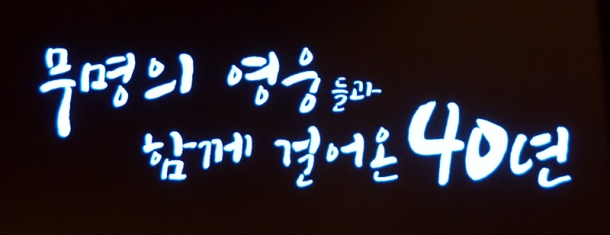 무명의 영웅들과
함께 걸어온 40년